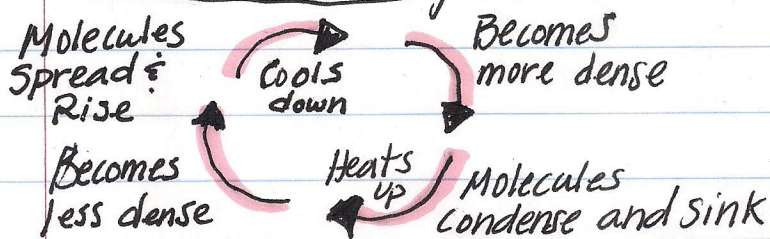 Molecules
Spread &
Rise
Cools
down
Becomes
more dense
Molecules
condense and sink
Heats
up
Becomes
less dense